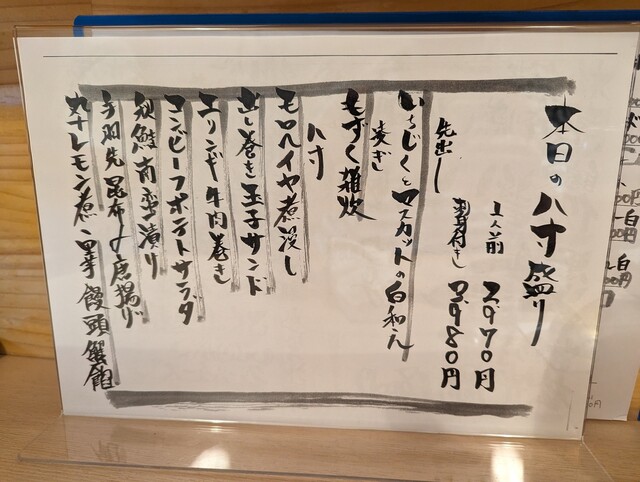 本日の八寸盛り
1人前 2,970円
刺身付き 3,980円
先出し
いちじくとマスカットの白和え
凌ぎ
もずく雑炊
八寸
モロヘイヤ煮浸し
出し巻き玉子サンド
エリンギ牛肉巻き
コンビーフポテトサラダ
秋鮭南蛮漬け
手羽先昆布〆唐揚げ
丸十レモン煮
饅頭蟹餡